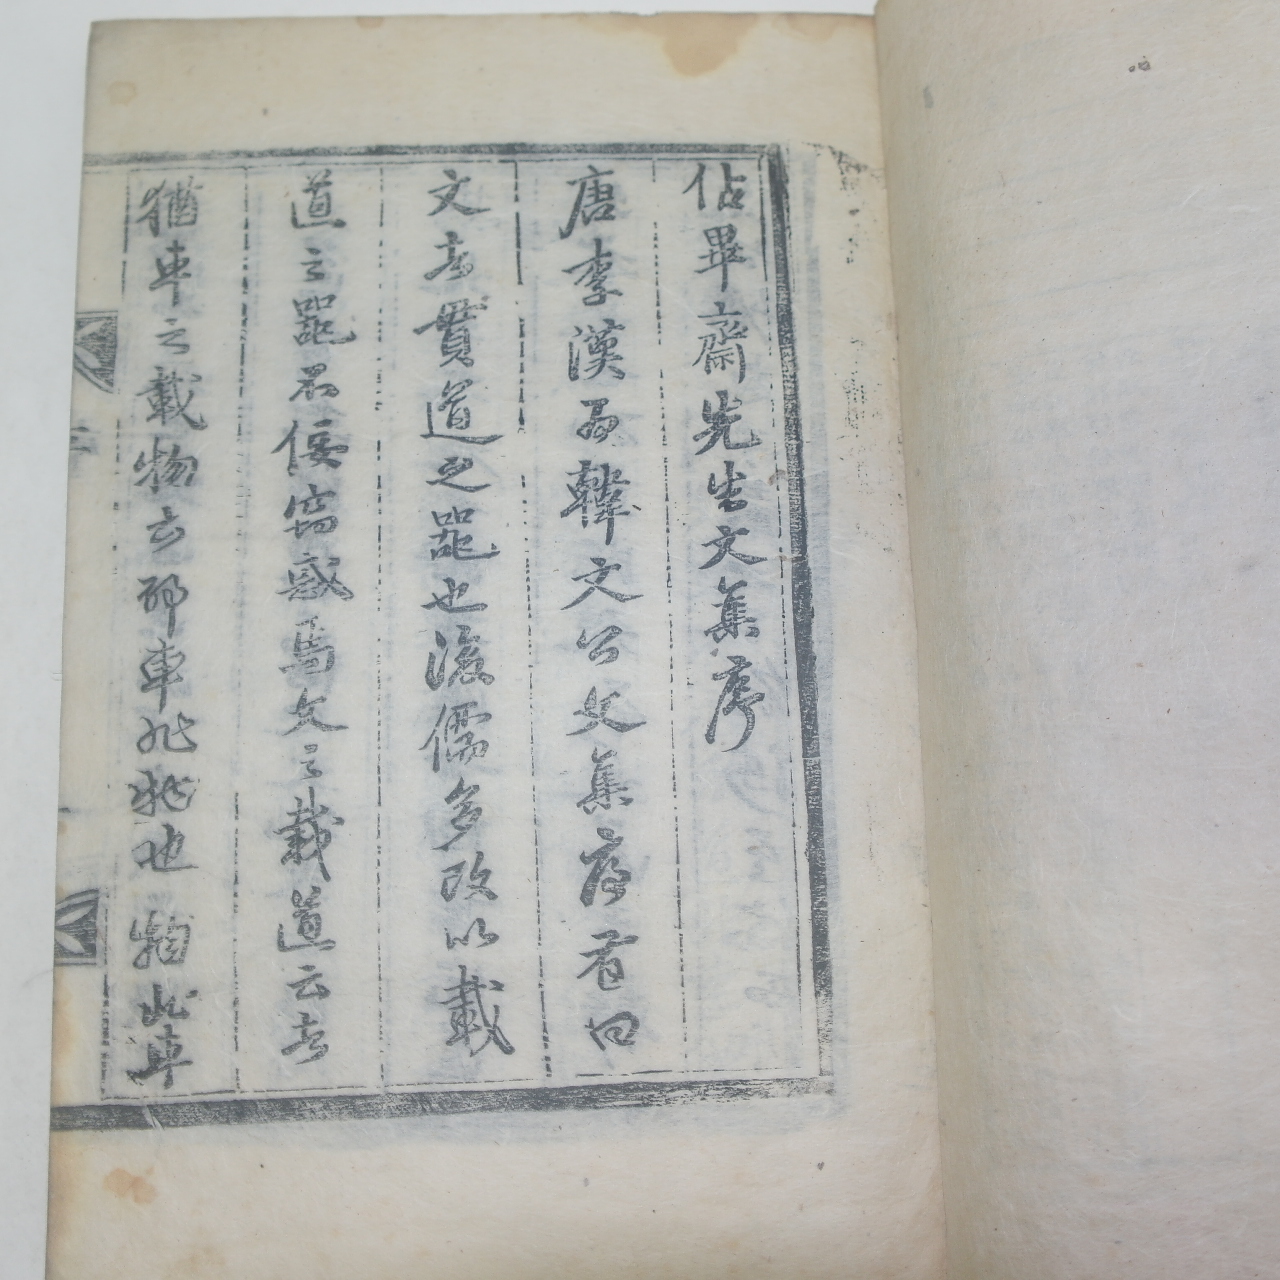 佔畢齋先生文集序
唐李漢爲韓文公文集序有曰
文者貫道之器也後儒多改以載
道之器不佞竊惑焉文之載道云者
猶車之載物云邪車非物也物此車